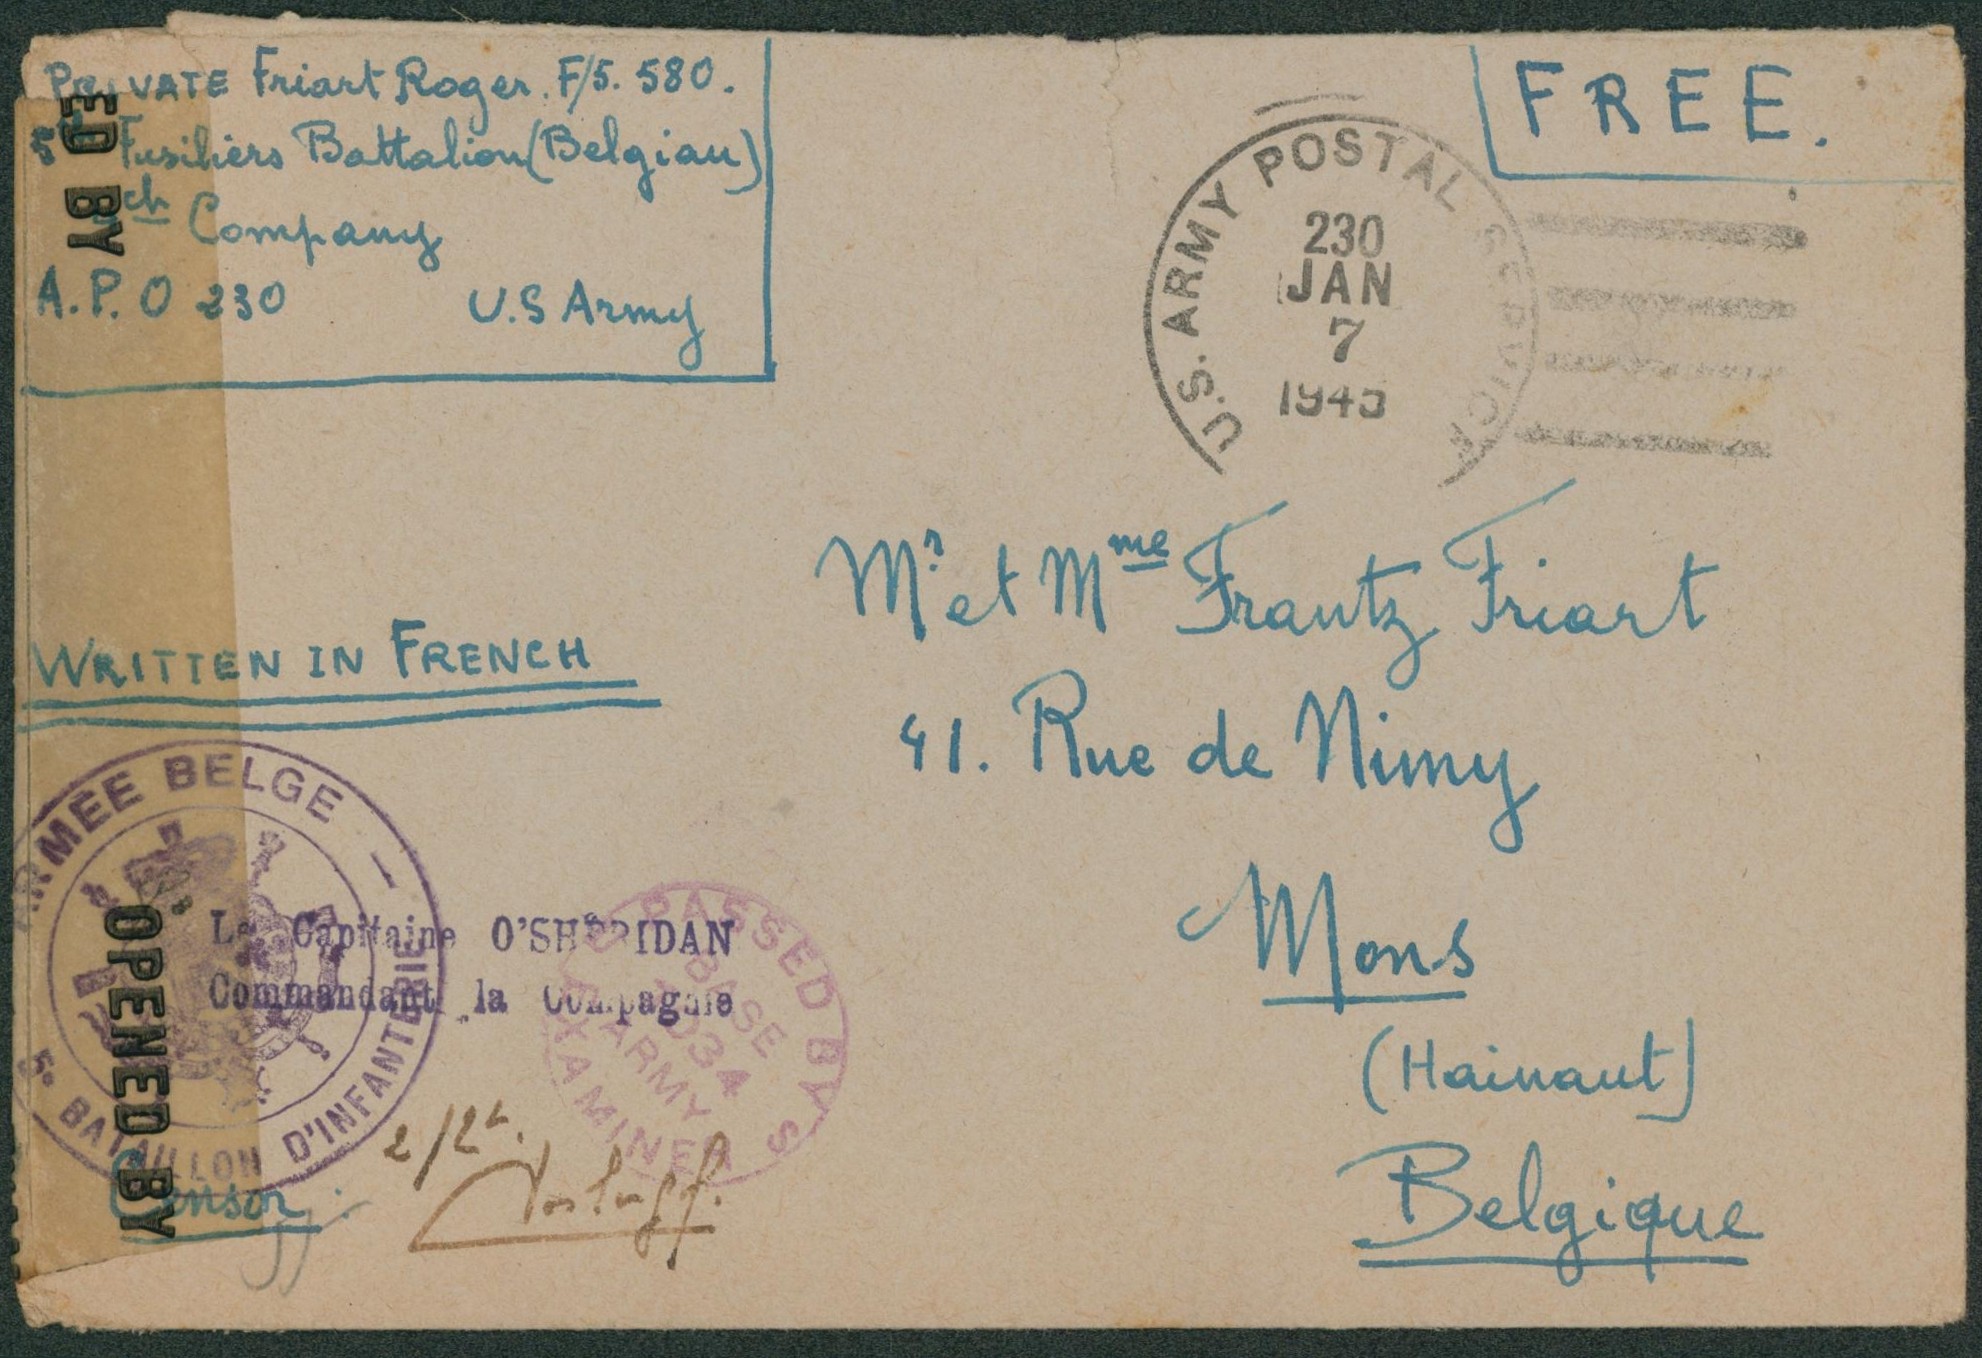 PRIVATE Friart Roger. F/5. 580.
5 Fusiliers Battalion (Belgian)
Company
A.P.O 230 U.S Army
FREE.
U.S. ARMY POSTAL SERVICE
230
JAN
7
1945
Mr et Mme Frantz Friart
41. Rue de Nimy
Mons
(Hainaut)
Belgique
WRITTEN IN FRENCH
ARMÉE BELGE —
5e BATAILLON D'INFANTERIE
Le Capitaine O'SHERIDAN
Commandant la Compagnie
PASSED BY
BASE
ARMY
EXAMINER
Censor :
2/Lt.
ED BY
OPENED BY